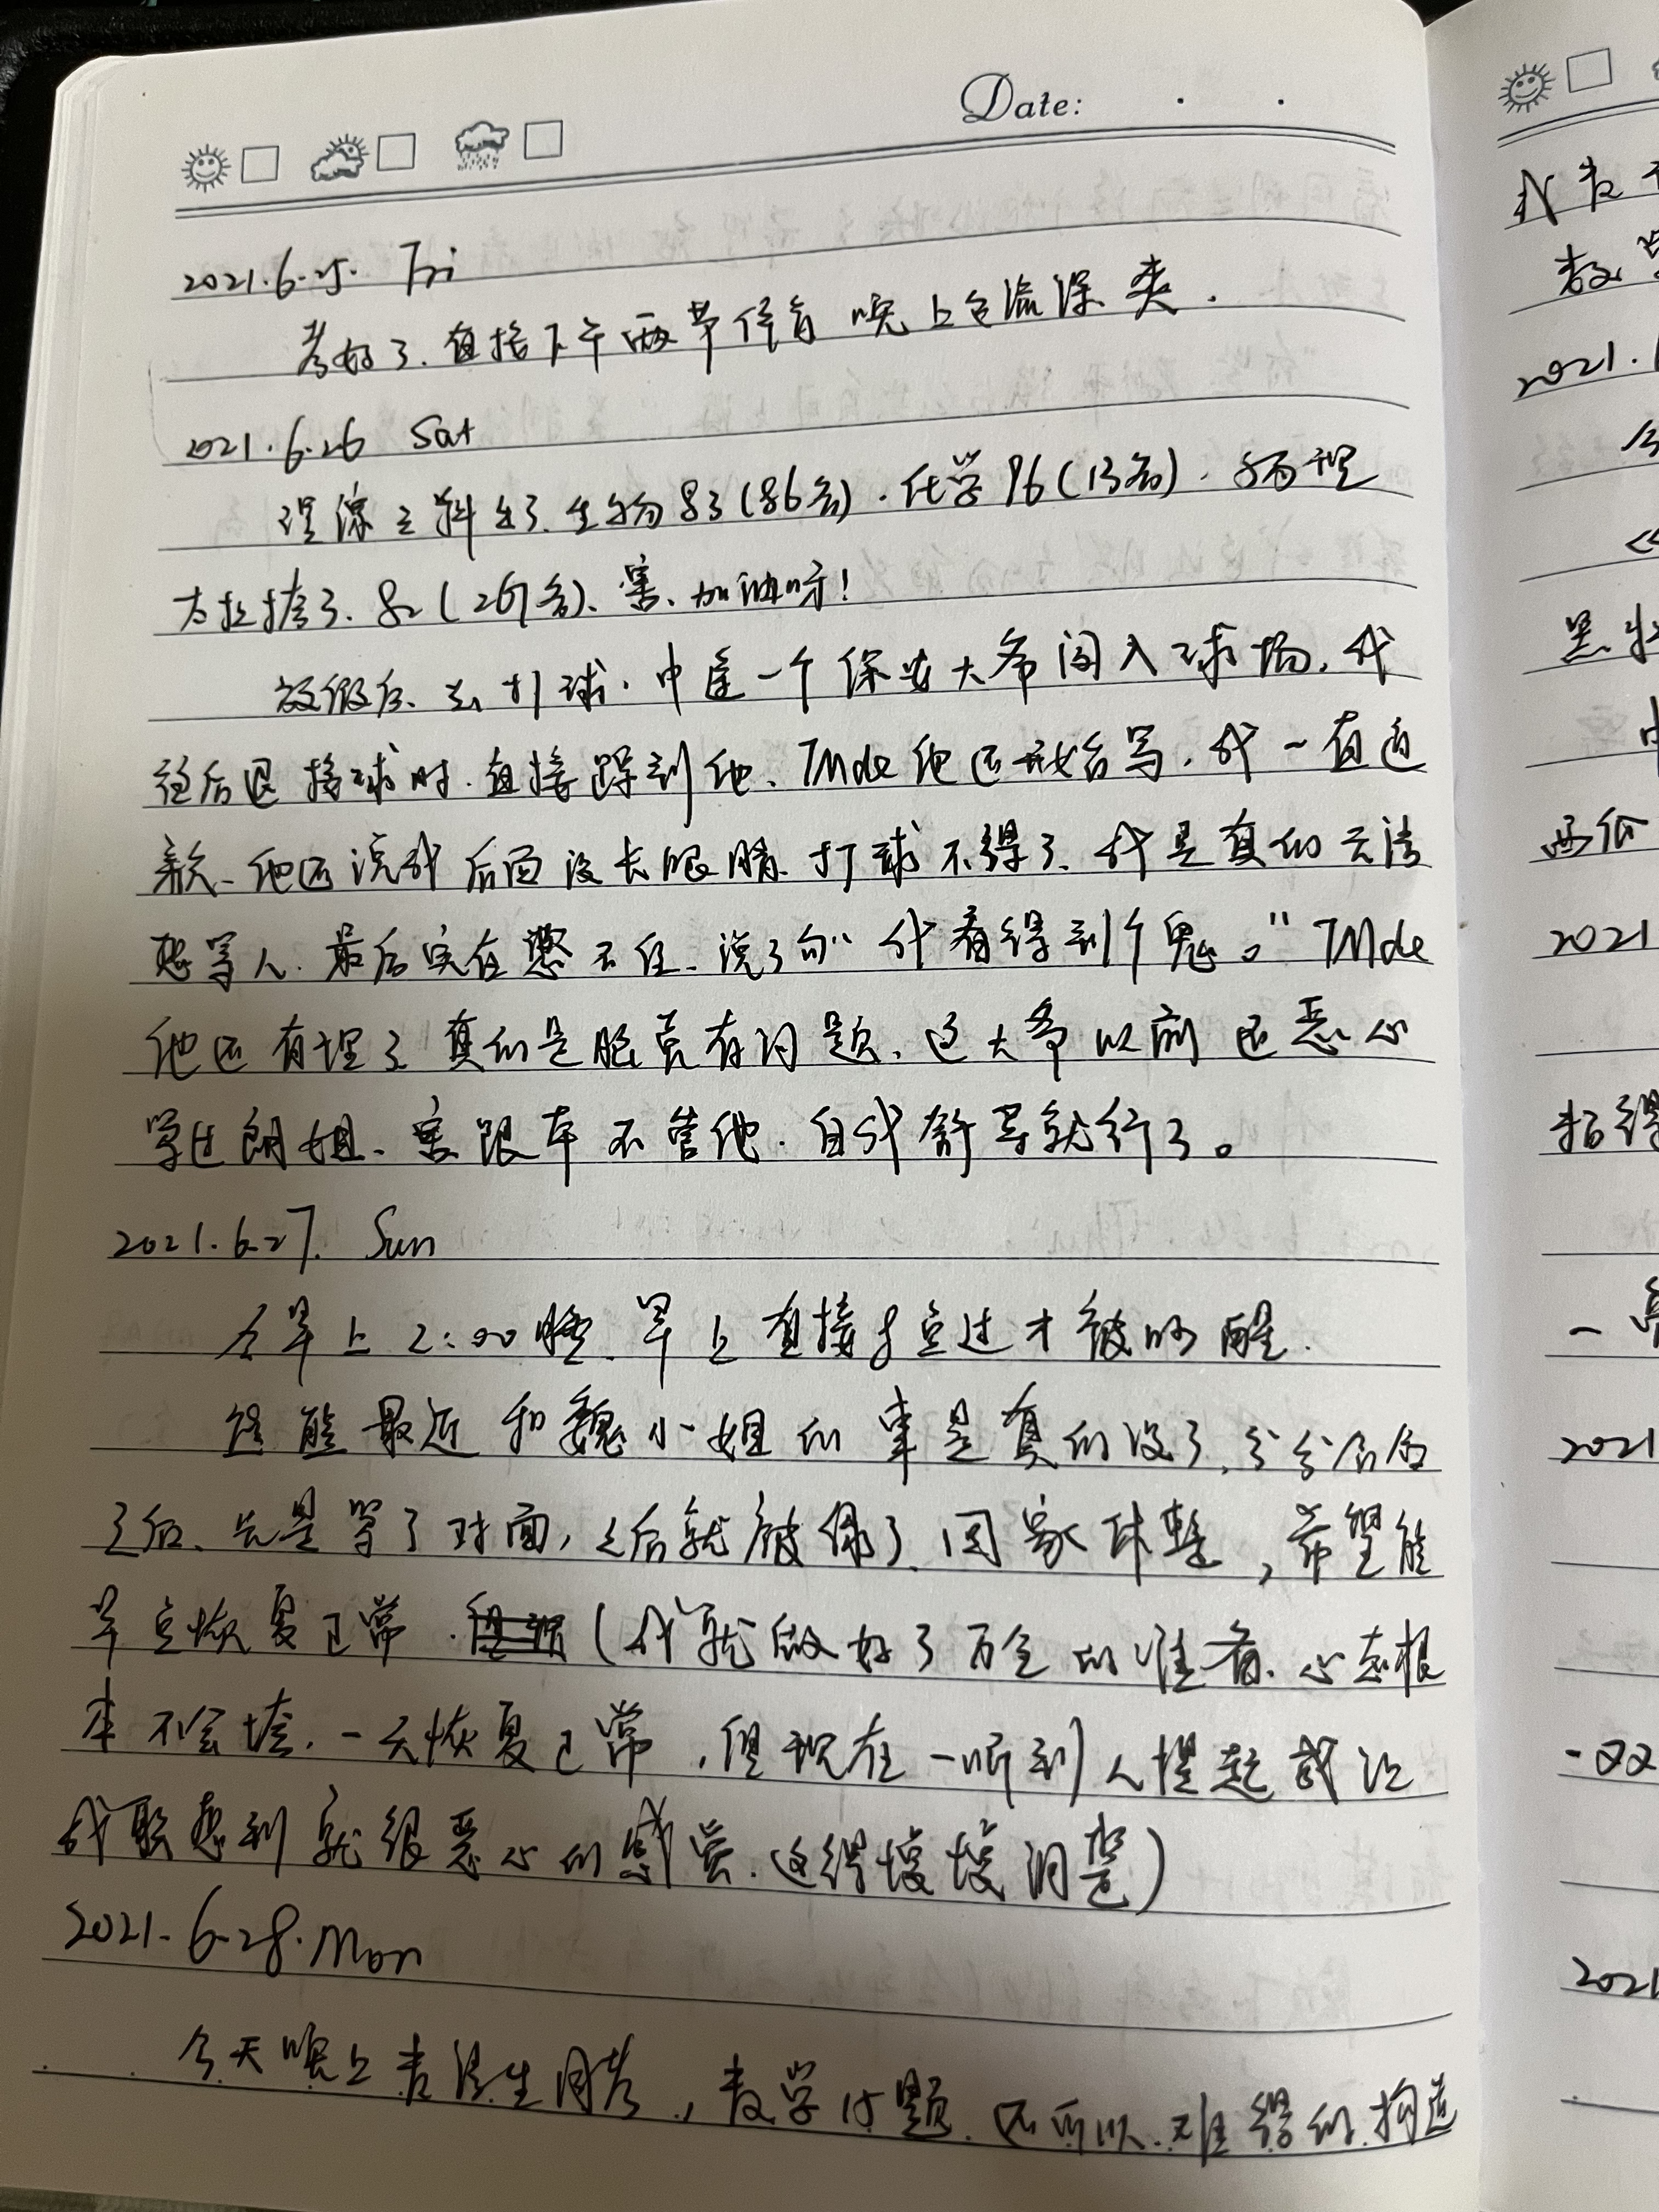 Date:
2021.6.25. Fri
考好了.直接下午两节体育 晚上包流深 爽.
2021.6.26 Sat
理综三科出了.生物83(86名).化学96(13名).物理
太拉垮了.82(267名)、害、加油呀!
放假后、去打球.中途一个保安大爷闯入球场.我
往后退接球时.直接踩到他、TMde他还开始骂.我一直道
歉、他还说我后面没长眼睛.打球不得了.我是真的无法
想骂人.最后实在憋不住、说了句“我看得到个鬼。”TMde
他还有理了 真的是脑壳有问题、这大爷以前还恶心
骂过朗姐、害 跟本不管他.自我舒导就行了。
2021.6.27. Sun
今早上2:00睡.早上直接8点过才被叫醒.
雄最近和魏小姐的事是真的没了,分
之后、先是等了对面,之后就被绿了.回家休整,希望能
早点恢复正常.(我就做好了万全的准备.心态根
本不会垮.一天恢复正常,但现在一听到人提起或让
我联想到就很恶心的感觉.这得慢慢消)
2021.6.28.Mon
今天晚上考周考,数学15题.还可以.难得的.构造
我
2021.
2021
2021
2021